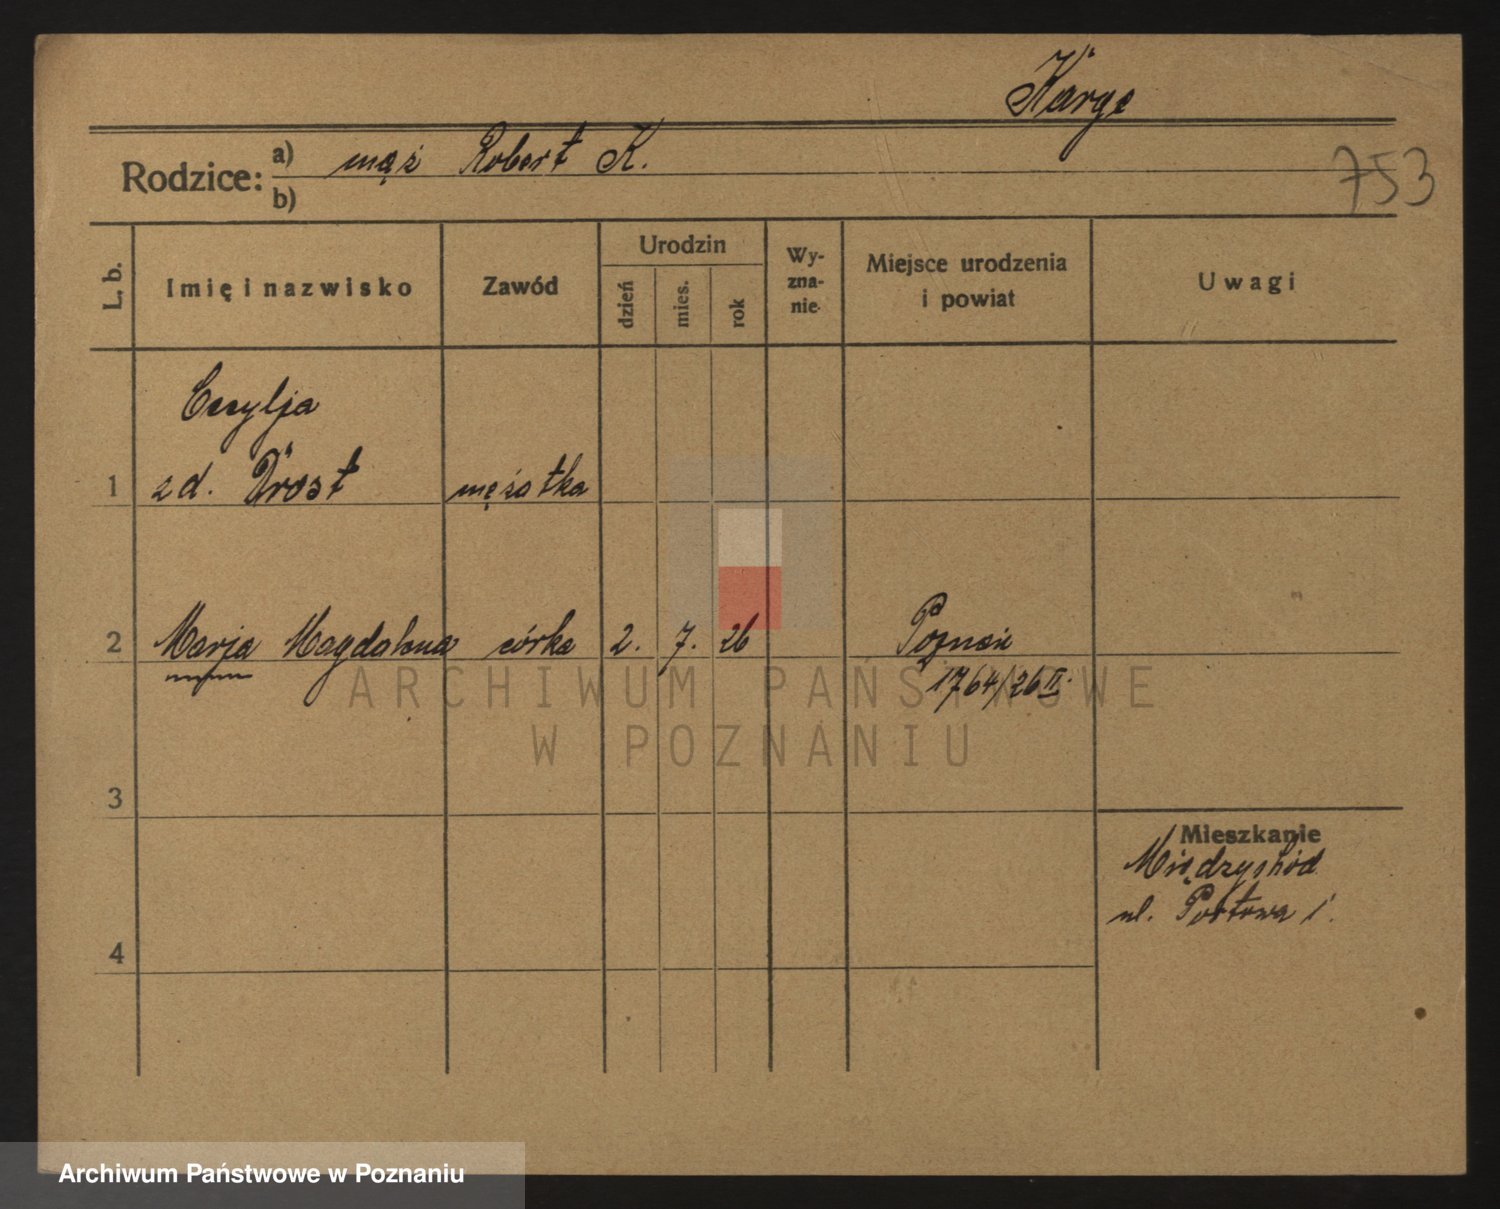 Karge
Rodzice: a) mąż Robert K.
b)
753
L. b. Imię i nazwisko Zawód Urodzin dzień mies. rok Wy-zna-nie Miejsce urodzenia i powiat Uwagi
Cecylja
1 zd. Drost mężatka
2 Marja Magdalena córka 2. 7. 26 Poznań
1764/26 II.
ARCHIWUM PAŃSTWOWE
W POZNANIU
3
Mieszkanie
Międzychód
ul. Portowa 1.
4
Archiwum Państwowe w Poznaniu